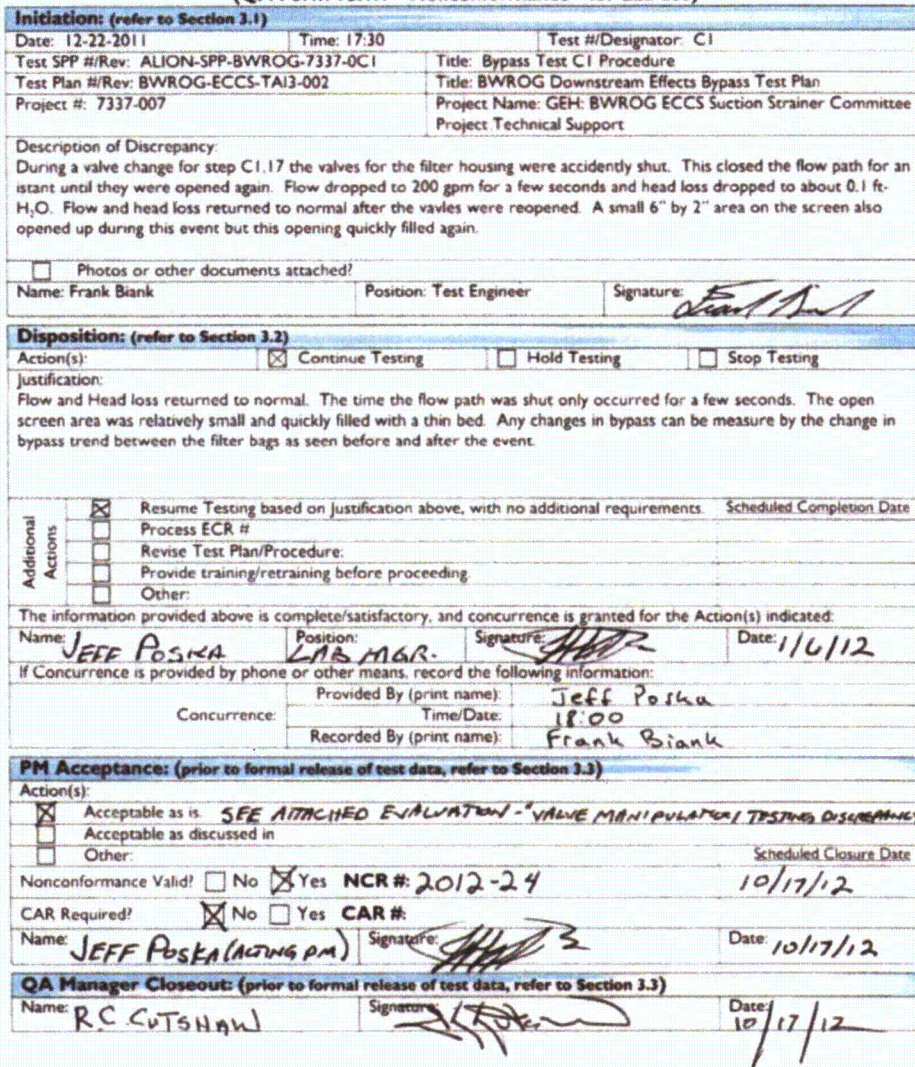 Initiation: (refer to Section 3.1)
Date: 12-22-2011 Time: 17:30 Test #/Designator: C1
Test SPP #/Rev: ALION-SPP-BWROG-7337-0C1 Title: Bypass Test C1 Procedure
Test Plan #/Rev: BWROG-ECCS-TA13-002 Title: BWROG Downstream Effects Bypass Test Plan
Project #: 7337-007 Project Name: GEH: BWROG ECCS Suction Strainer Committee
Project Technical Support
Description of Discrepancy:
During a valve change for step C1.17 the valves for the filter housing were accidently shut. This closed the flow path for an
istant until they were opened again. Flow dropped to 200 gpm for a few seconds and head loss dropped to about 0.1 ft-
H₂O. Flow and head loss returned to normal after the vavles were reopened. A small 6" by 2" area on the screen also
opened up during this event but this opening quickly filled again.
Photos or other documents attached?
Name: Frank Biank Position: Test Engineer Signature:
Disposition: (refer to Section 3.2)
Action(s): Continue Testing Hold Testing Stop Testing
Justification:
Flow and Head loss returned to normal. The time the flow path was shut only occurred for a few seconds. The open
screen area was relatively small and quickly filled with a thin bed. Any changes in bypass can be measure by the change in
bypass trend between the filter bags as seen before and after the event.
Additional Actions
Resume Testing based on Justification above, with no additional requirements. Scheduled Completion Date
Process ECR #
Revise Test Plan/Procedure:
Provide training/retraining before proceeding
Other:
The information provided above is complete/satisfactory, and concurrence is granted for the Action(s) indicated:
Name: JEFF POSKA Position: LAB MGR. Signature: Date: 1/6/12
If Concurrence is provided by phone or other means, record the following information:
Concurrence: Provided By (print name): Jeff Poska
Time/Date: 18:00
Recorded By (print name): Frank Biank
PM Acceptance: (prior to formal release of test data, refer to Section 3.3)
Action(s):
Acceptable as is SEE ATTACHED EVALUATION - "VALVE MANIPULATION TESTING DISCREPANCY
Acceptable as discussed in
Other: Scheduled Closure Date
Nonconformance Valid? No Yes NCR #: 2012-24 10/17/12
CAR Required? No Yes CAR #:
Name: JEFF POSKA (ACTING PM) Signature: Date: 10/17/12
QA Manager Closeout: (prior to formal release of test data, refer to Section 3.3)
Name: R.C. CUTSHAW Signature Date: 10/17/12